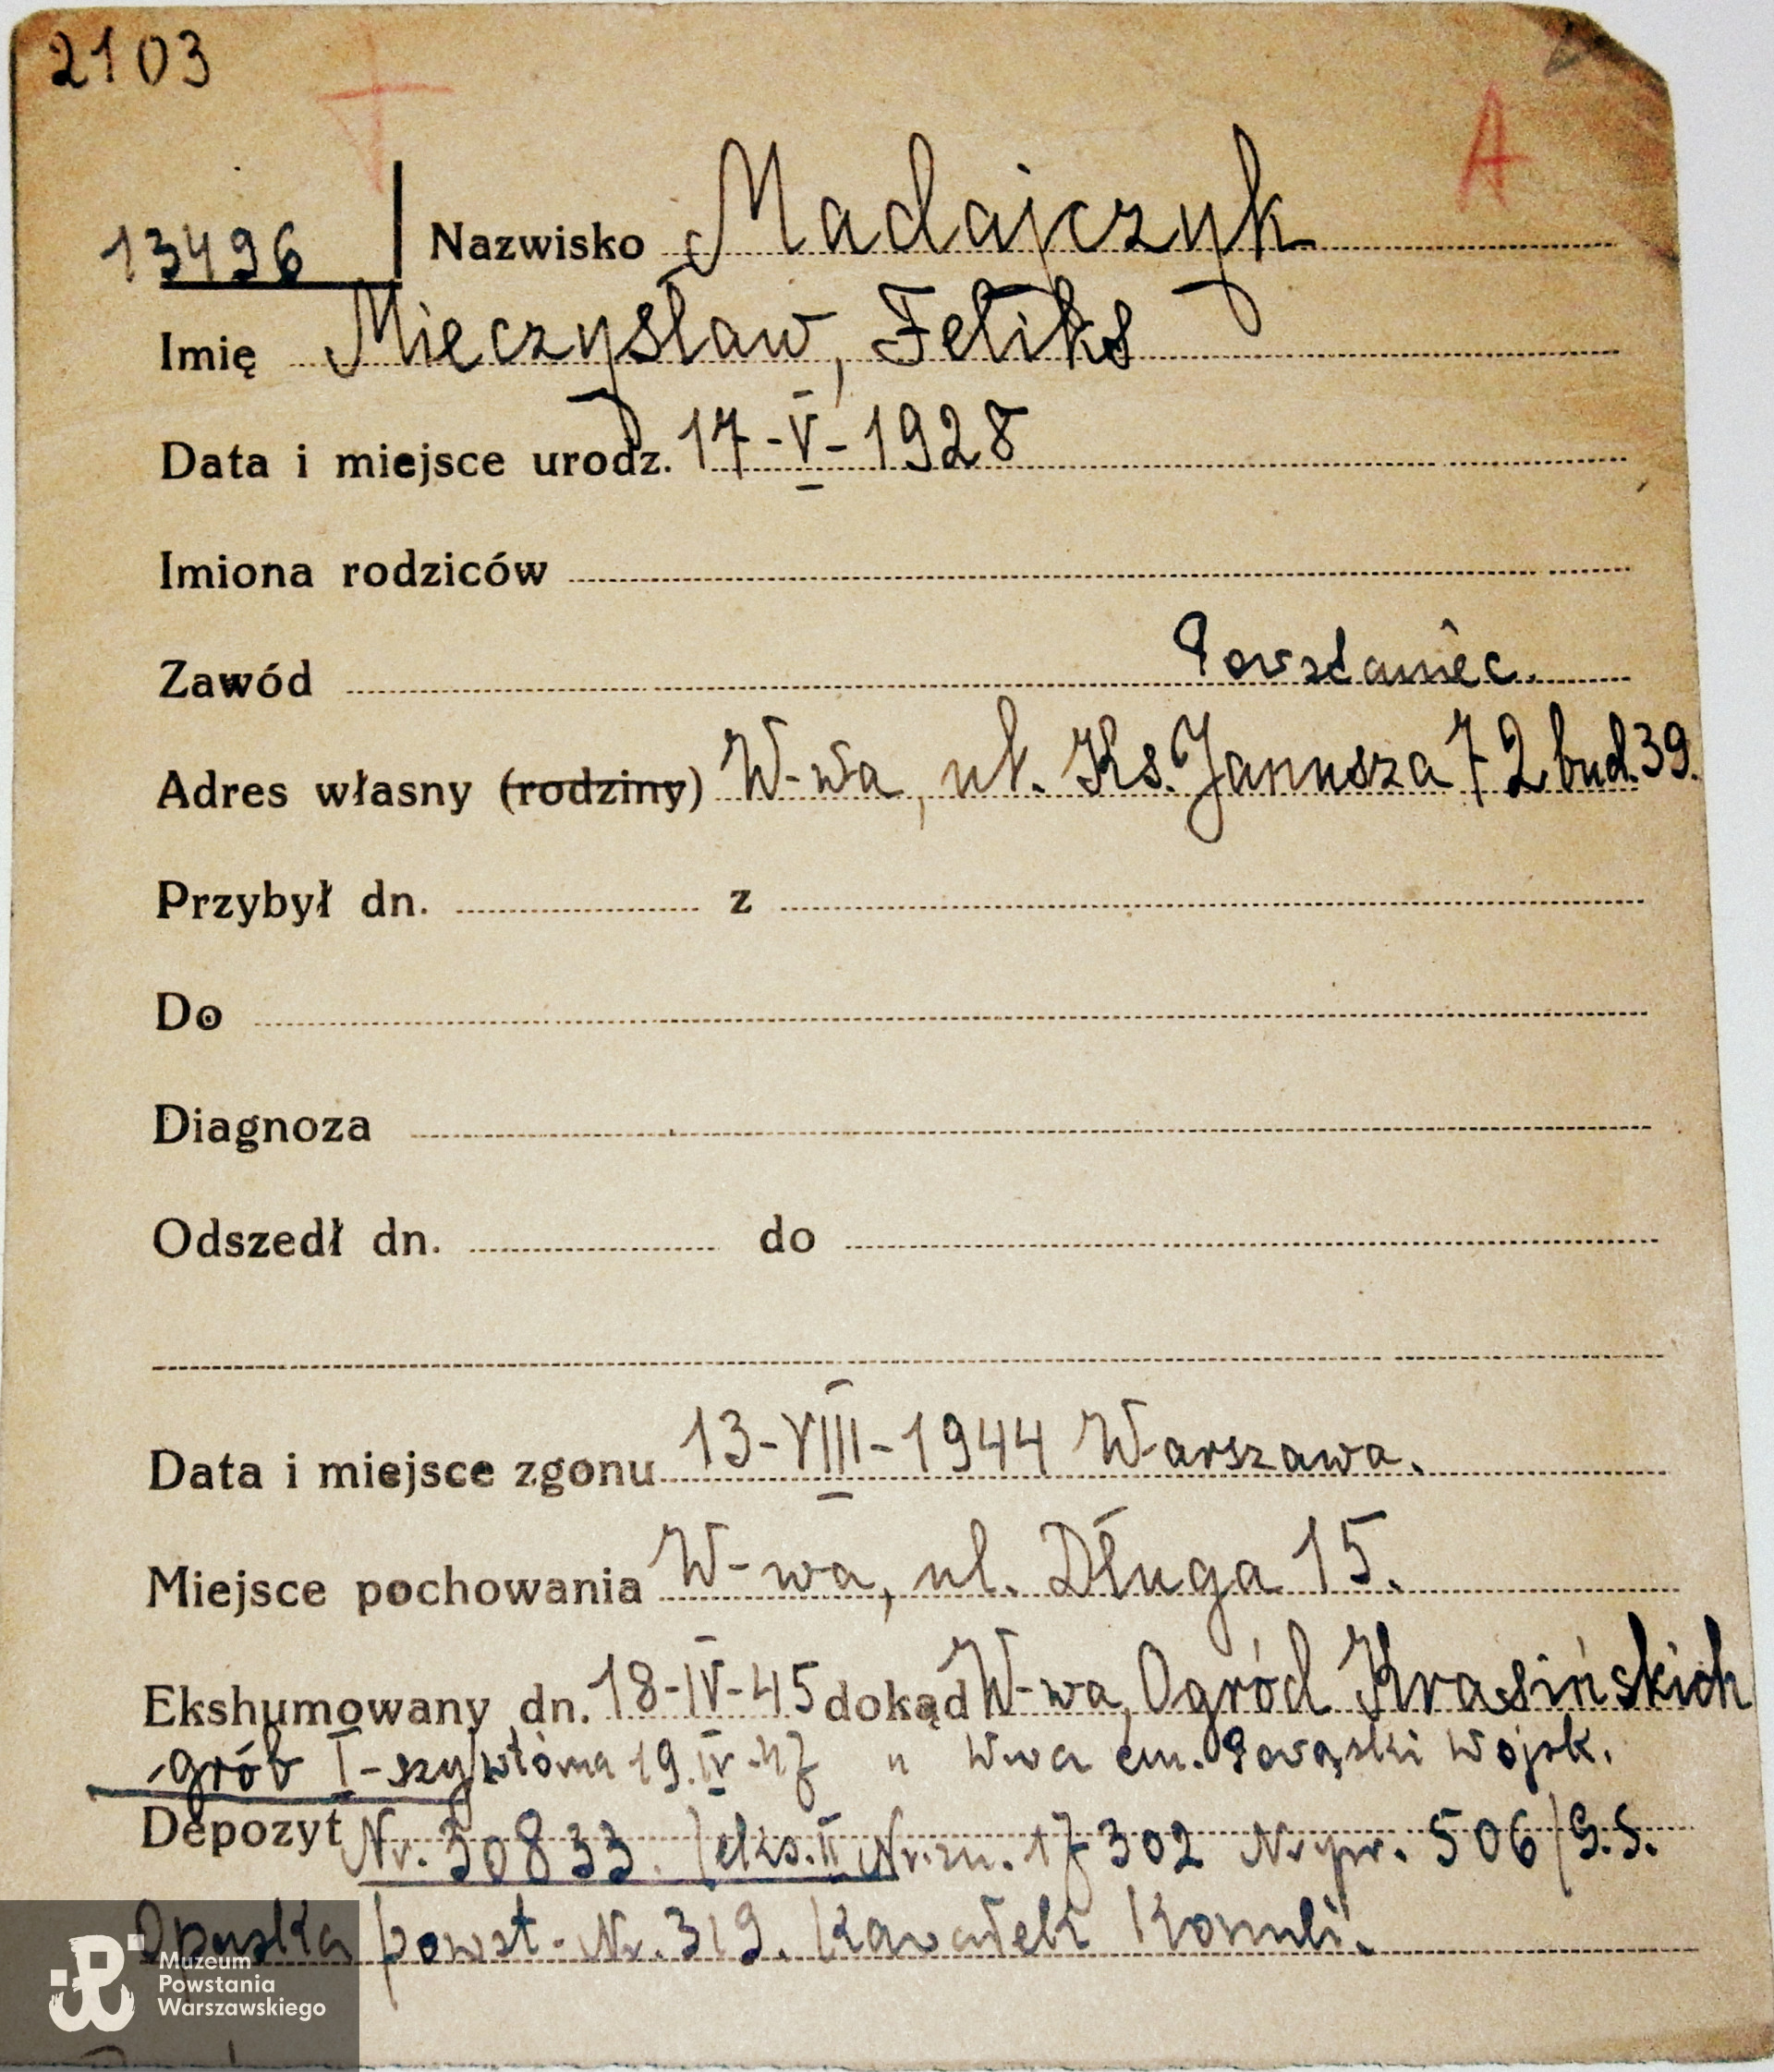 2103
T
A
13496 Nazwisko Madajczyk
Imię Mieczysław, Feliks
Data i miejsce urodz. 17-V-1928
Imiona rodziców
Zawód Powstaniec.
Adres własny (rodziny) W-wa, ul. Ks. Janusza 72 bud. 39.
Przybył dn. z
Do
Diagnoza
Odszedł dn. do
Data i miejsce zgonu 13-VIII-1944 Warszawa.
Miejsce pochowania W-wa, ul. Długa 15.
Ekshumowany dn. 18-IV-45 dokąd W-wa, Ogród Krasińskich
-grób I-szy/wtórna 19.IV-47 " Wwa cm. Powązski Wojsk.
Depozyt Nr. 30833. /eks. II Nr. zn. 17302 Nr. pr. 506/G.S.
Opaska powst. Nr. 319. Kawałek Komuli.
Muzeum
Powstania
Warszawskiego